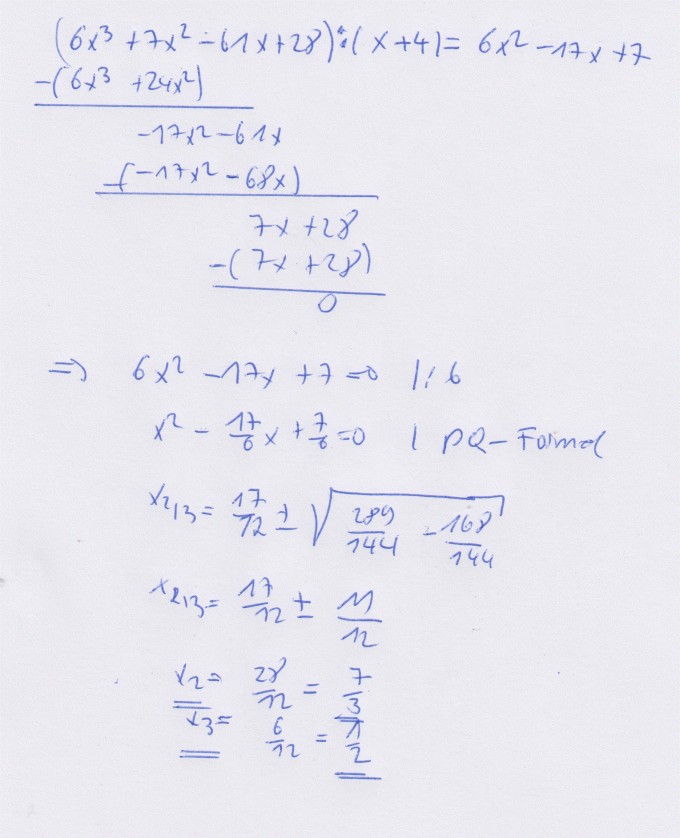 (6x³ +7x² -61x+28):(x+4)= 6x² -17x +7
-(6x³ +24x²)
-17x² -61x
-(-17x² -68x)
7x +28
-(7x +28)
0
=> 6x² -17x +7 =0 |:6
x² - 17/6 x + 7/6 =0 | PQ-Formel
x2,3= 17/12 ± √(289/144 - 168/144)
x2,3= 17/12 ± 11/12
x2= 28/12 = 7/3
x3= 6/12 = 1/2